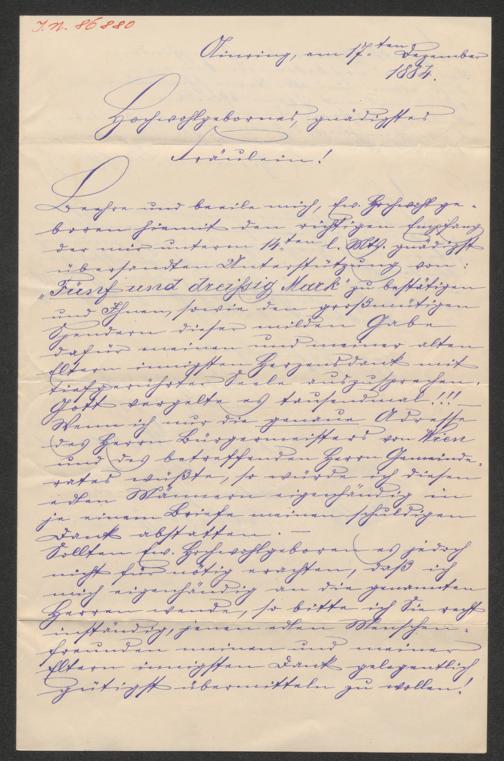 I. N. 86880
Ainring, am 17.ten Dezember
1884.
Hochwohlgebornes, gnädigstes
Fräulein!
Beehre und beeile mich, Ew. Hochwohlge-
boren hiemit den richtigen Empfang
der mir unterm 14.ten l. Mts. gnädigst
übersandten Unterstützung von:
"Fünf und dreißig Mark" zu bestätigen
und Ihnen, sowie den großmütigen
Spendern dieser milden Gabe
dafür meinen und meiner alten
Eltern innigsten Herzensdank mit
tiefgerührter Seele auszusprechen.
Gott vergelte es tausendmal!!!
Wenn ich nur die genaue Adresse
des Herrn Bürgermeisters von Wien
und des betreffenden Herrn Gemeinde-
rates wüßte, so würde ich diesen
edlen Männern eigenhändig in
je einem Briefe meinen schuldigen
Dank abstatten. —
Sollten Ew. Hochwohlgeboren es jedoch
nicht für nötig erachten, daß ich
mich eigenhändig an die genannten
Herren wende, so bitte ich Sie recht
inständig, jenen edlen Menschen-
freunden meinen und meiner
Eltern innigsten Dank gelegentlich
gütigst übermitteln zu wollen!